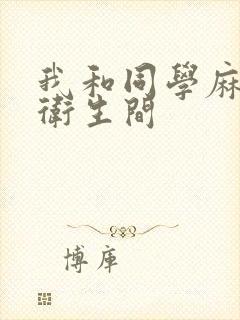 我和同學麻
衛生間
博庫